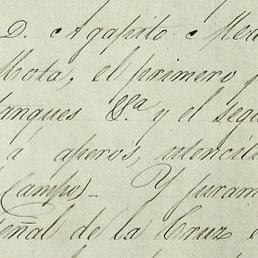 D. Agapito Mer
Mota, el primero p
anques &ª y el seg
a aperos, utencil
Campo)_ Y juram
eñal de la Cruz e